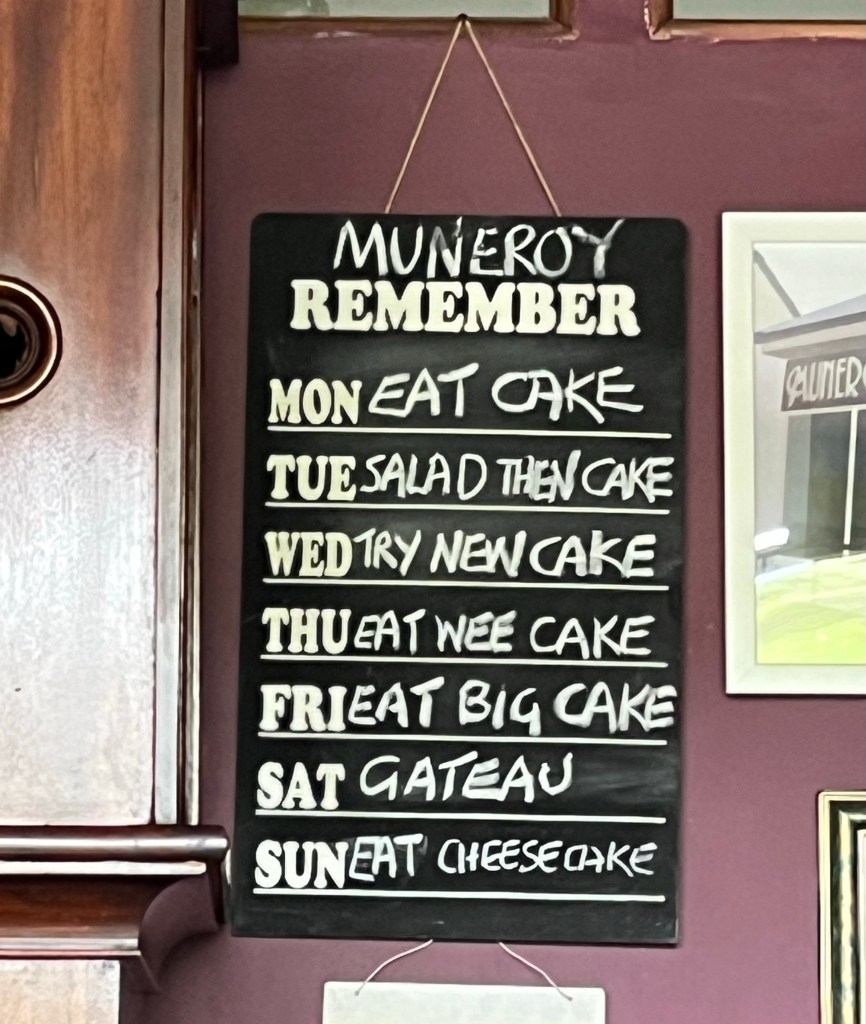 MUNEROY
REMEMBER
MON EAT CAKE
TUE SALAD THEN CAKE
WED TRY NEW CAKE
THU EAT WEE CAKE
FRI EAT BIG CAKE
SAT GATEAU
SUN EAT CHEESECAKE